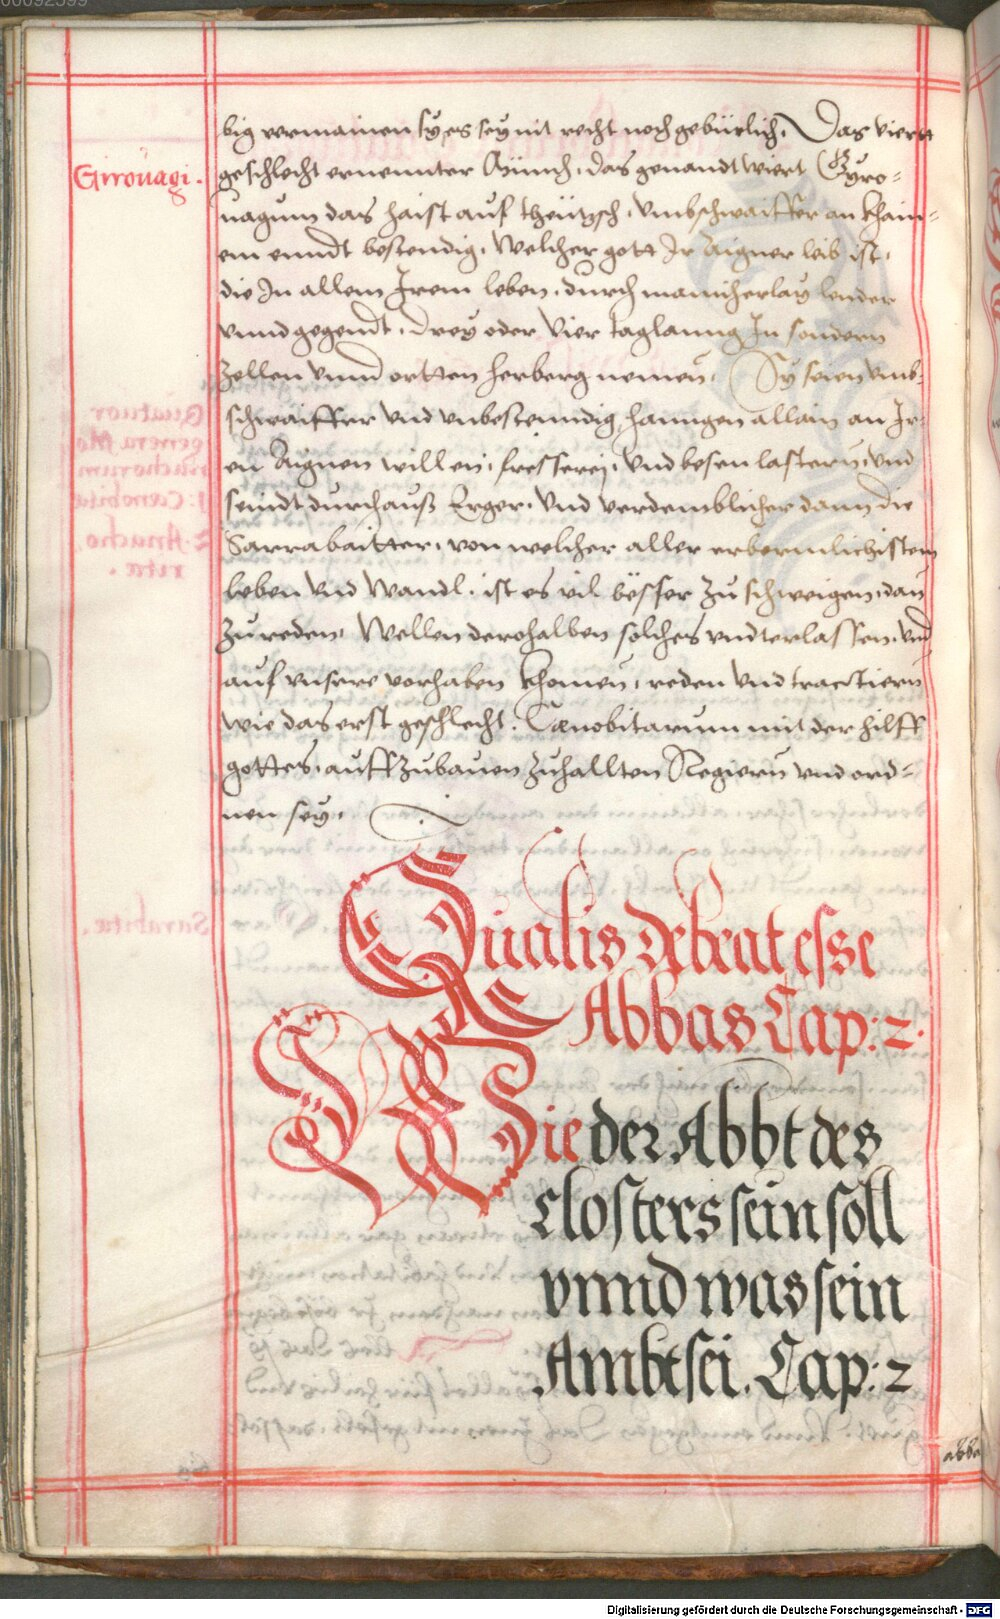 Girouagi.
big vermainen sy, es sey nit recht noch gebürlich. Das viertt
geschlecht ernennter Münich, das genandt wiert Gyro-
uagum das haist auf theützsch, vmbschwaiffer an khain-
em enndt bestendig, Welcher gott Ir Aigner leib ist,
die In allem Irem leben, durch manicherlay lender
vnnd gegendt, drey oder vier taglanng In sondern
Zellen vnnd ortten herberg nemen. Sy seien vmb-
schwaiffer vnd vnbestenndig, hanngen allain an Ir-
en Aignen willen, fresserey, vnd besen lastern, vnd
seindt durchauß Erger, vnd verdemblicher dann die
Sarrabaitter, von welcher aller erbermlichisten
leben vnd Wandl, ist es vil besser zu schweigen, dan
zu reden, Wellen derohalben solches vndterlassen, vnd
auf vnsere vorhaben khomen, reden vnd tractiern
wie das erst geschlecht: Cœnobitarum mit der hilff
gottes, auffzubauen zuhallten Regiern vnd ord-
nen sey.
Qualis debeat esse
Abbas Cap: 2.
Wie der Abbt des
closters sein soll
vnnd was sein
Ambt sei. Cap: 2
abba
Digitalisierung gefördert durch die Deutsche Forschungsgemeinschaft - DFG